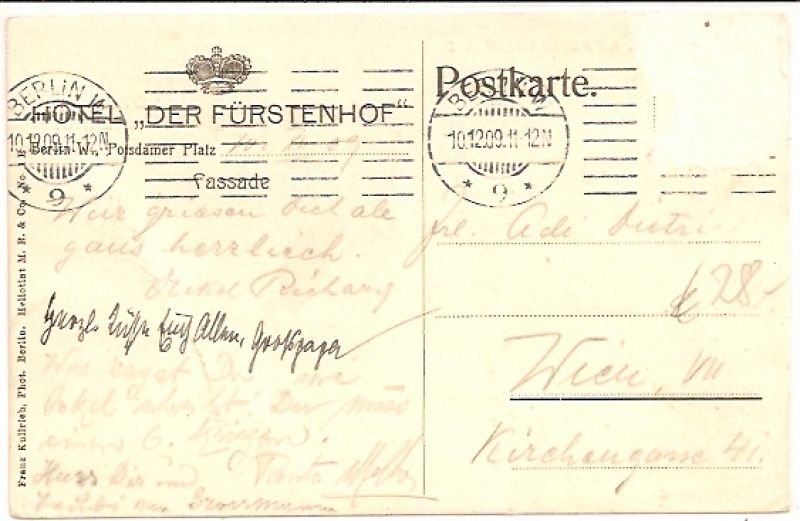 BERLIN W.
10.12.09.11-12N.
* 9 *
HOTEL „DER FÜRSTENHOF“
Berlin W., Potsdamer Platz
Fassade
Postkarte.
10.12.09.11-12N.
* 9 *
Wir grüssen Dich alle
ganz herzlich.
Onkel Richard
Herzl. Küsse Euch Allen, Grosspapa
Was sagst Du wie
Onkel schreibt! Der muss
einen 6. kriegen.
Kuss Dir und Tante
frl. Adi
28-
Wien, VII
Kirchengasse 41.
Franz Kullrich, Phot. Berlin. Heliotint M. B. & Co. No.